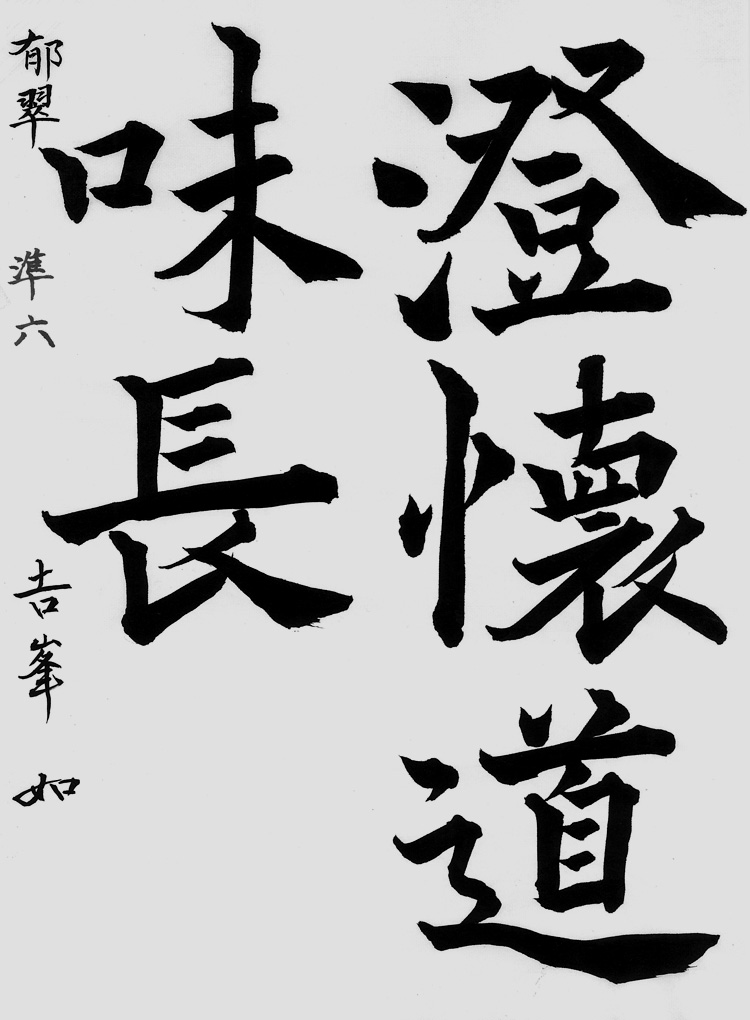 澄懐道
味長
郁翠 準六 吉峯 如